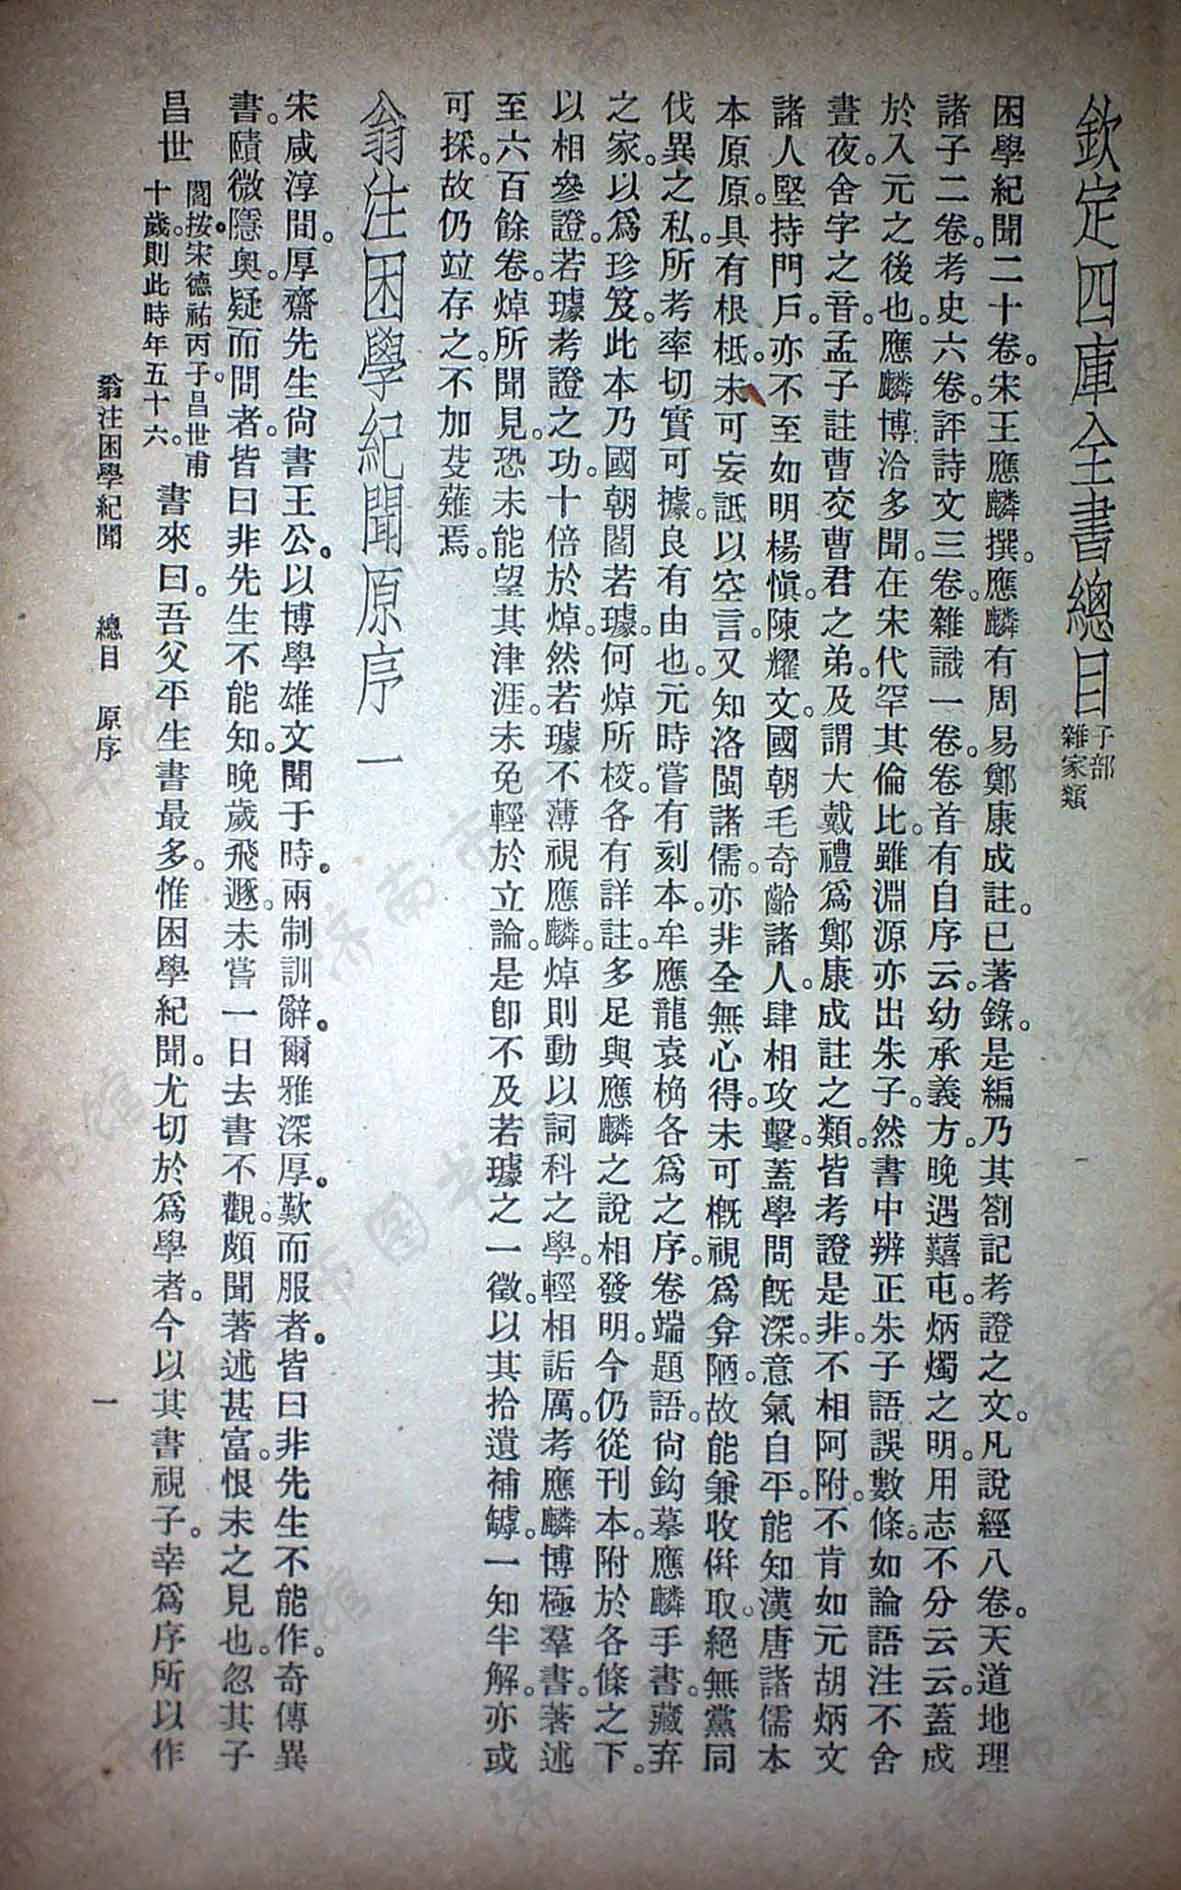 欽定四庫全書總目子部雜家類
困學紀聞二十卷。宋王應麟撰。應麟有周易鄭康成註。已著錄。是編乃其劄記考證之文。凡說經八卷。天道地理
諸子二卷。考史六卷。評詩文三卷。雜識一卷。卷首有自序云。幼承義方。晚遇囏屯。炳燭之明。用志不分云云。蓋成
於入元之後也。應麟博洽多聞。在宋代罕其倫比。雖淵源亦出朱子。然書中辨正朱子語誤數條。如論語注不舍
晝夜。舍字之音。孟子註曹交曹君之弟。及謂大戴禮爲鄭康成註之類。皆考證是非。不相阿附。不肯如元胡炳文
諸人堅持門戶。亦不至如明楊愼。陳耀文。國朝毛奇齡諸人。肆相攻擊。蓋學問旣深。意氣自平。能知漢唐諸儒本
本原原。具有根柢。未可妄詆以空言。又知洛閩諸儒。亦非全無心得。未可槪視爲弇陋。故能兼收倂取。絕無黨同
伐異之私。所考率切實可據。良有由也。元時嘗有刻本。牟應龍袁桷各爲之序。卷端題語。尙鈎摹應麟手書。藏弆
之家。以爲珍笈。此本乃國朝閻若璩。何焯所校。各有詳註。多足與應麟之說相發明。今仍從刊本。附於各條之下。
以相參證。若璩考證之功。十倍於焯。然若璩不薄視應麟。焯則動以詞科之學。輕相詬厲。考應麟博極羣書。著述
至六百餘卷。焯所聞見。恐未能望其津涯。未免輕於立論。是卽不及若璩之一徵。以其拾遺補罅。一知半解。亦或
可採。故仍竝存之。不加芟薙焉。
翁注困學紀聞原序一
宋咸淳間。厚齋先生尙書王公。以博學雄文聞于時。兩制訓辭。爾雅深厚。歎而服者。皆曰非先生不能作。奇傳異
書。賾微隱奧。疑而問者。皆曰非先生不能知。晚歲飛遯。未嘗一日去書不觀。頗聞著述甚富。恨未之見也。忽其子
昌世閻按宋德祐丙子。昌世甫十歲。則此時年五十六。書來曰。吾父平生書最多。惟困學紀聞。尤切於爲學者。今以其書視子。幸爲序所以作
翁注困學紀聞 總目 原序 一